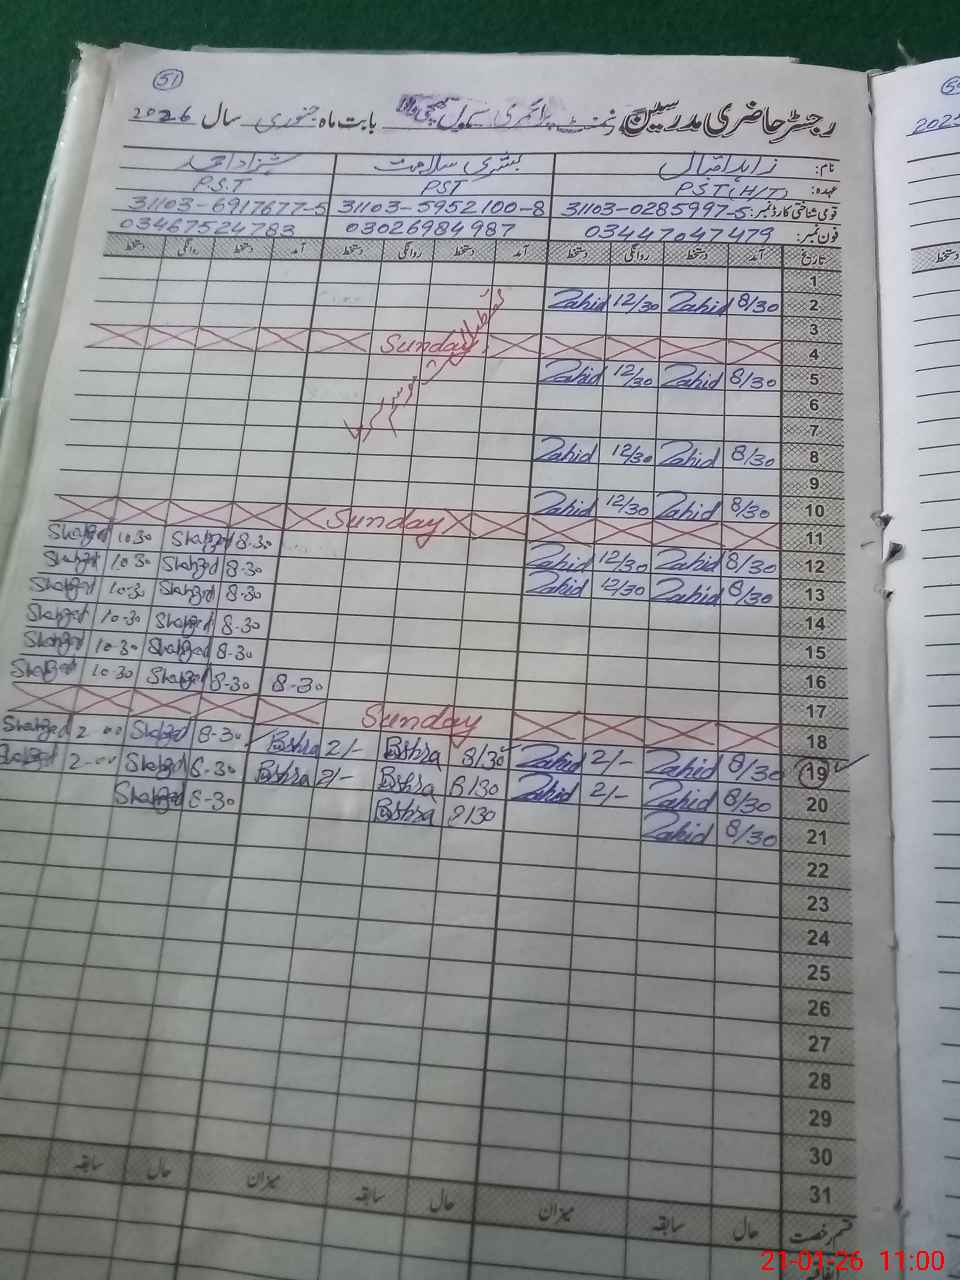 51
رجسٹر حاضری مدرسین گورنمنٹ پرائمری سکول بابت ماہ جنوری سال 2026
نام: زاہد اقبال بشریٰ سلامت شہزاد احمد
عہدہ: P.S.T (H/T) PST P.S.T
قومی شناختی کارڈ نمبر: 31103-0285997-5 31103-5952100-8 31103-6917677-5
فون نمبر: 03447047479 03026984987 03467524783
تاریخ آمد دستخط روانگی دستخط آمد دستخط روانگی دستخط آمد دستخط روانگی دستخط
1
2 8/30 Zahid 12/30 Zahid
3
4 Sunday
5 8/30 Zahid 12/30 Zahid
6
7
8 8/30 Zahid 12/30 Zahid
9
10 8/30 Zahid 12/30 Zahid
11 Sunday
12 8/30 Zahid 12/30 Zahid 8-30 Shahzad 10-30 Shahzad
13 8/30 Zahid 12/30 Zahid 8-30 Shahzad 10-30 Shahzad
14 8-30 Shahzad 10-30 Shahzad
15 8-30 Shahzad 10-30 Shahzad
16 8-30 Shahzad 10-30 Shahzad
17 8-30 8-30 Shahzad 10-30 Shahzad
18 Sunday
19 8/30 Zahid 2/- Zahid 8/30 Bshra 2/- Bshra 8-30 Shahzad 2-00 Shahzad
20 8/30 Zahid 2/- Zahid 8/30 Bshra 2/- Bshra 8-30 Shahzad 2-00 Shahzad
21 8/30 Zahid 8/30 Bshra 8-30 Shahzad
22
23
24
25
26
27
28
29
30
31
قسم رخصت حال سابقہ میزان حال سابقہ میزان حال سابقہ
تعطیلات موسم سرما
2025
دستخط
21-01-26 11:00